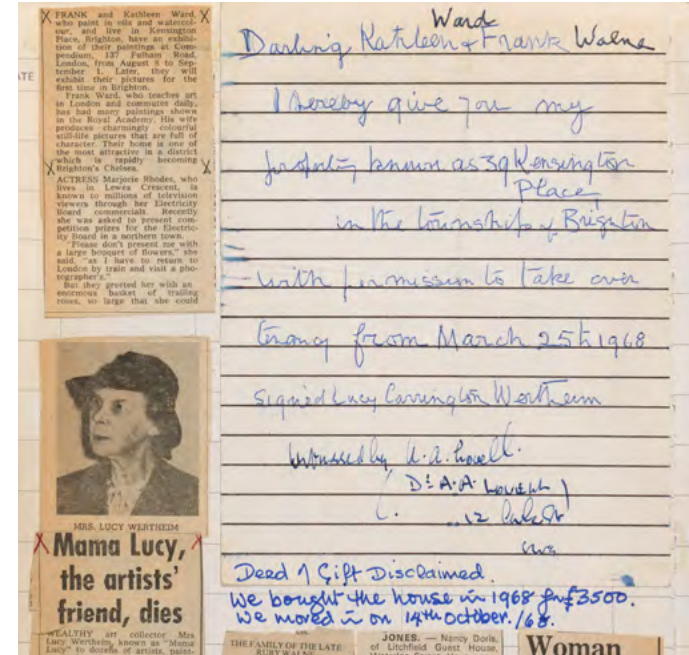 FRANK and Kathleen Ward,
who paint in oils and watercol-
our, and live in Kensington
Place, Brighton, have an exhibi-
tion of their paintings at Com-
pendium, 137 Fulham Road,
London, from August 8 to Sep-
tember 1. Later, they will
exhibit their pictures for the
first time in Brighton.
Frank Ward, who teaches art
in London and commutes daily,
has had many paintings shown
in the Royal Academy. His wife
produces charmingly colourful
still-life pictures that are full of
character. Their home is one of
the most attractive in a district
which is rapidly becoming
Brighton's Chelsea.
ACTRESS Marjorie Rhodes, who
lives in Lewes Crescent, is
known to millions of television
viewers through her Electricity
Board commercials. Recently
she was asked to present com-
petition prizes for the Electric-
ity Board in a northern town.
"Please don't present me with
a large bouquet of flowers," she
said, "as I have to return to
London by train and visit a pho-
tographer's."
But they greeted her with an
enormous basket of trailing
roses, so large that she could
MRS. LUCY WERTHEIM
Mama Lucy,
the artists'
friend, dies
WEALTHY art collector Mrs
Lucy Wertheim, known as "Mama
Lucy" to dozens of artists, paint-
Ward
Darling Kathleen & Frank Walne
I hereby give you my
property known as 39 Kensington
Place
in the township of Brighton
with permission to take over
from March 25th 1968
Signed Lucy Carrington Wertheim
Witnessed by A. A. Lovell.
(Dr A. A. Lovell)
12
Deed of Gift Disclaimed.
We bought the house in 1968 for £3500.
We moved in on 14th October./68.
THE FAMILY OF THE LATE
RUBY WALNE
JONES. — Nancy Doris,
of Litchfield Guest House,
Woman